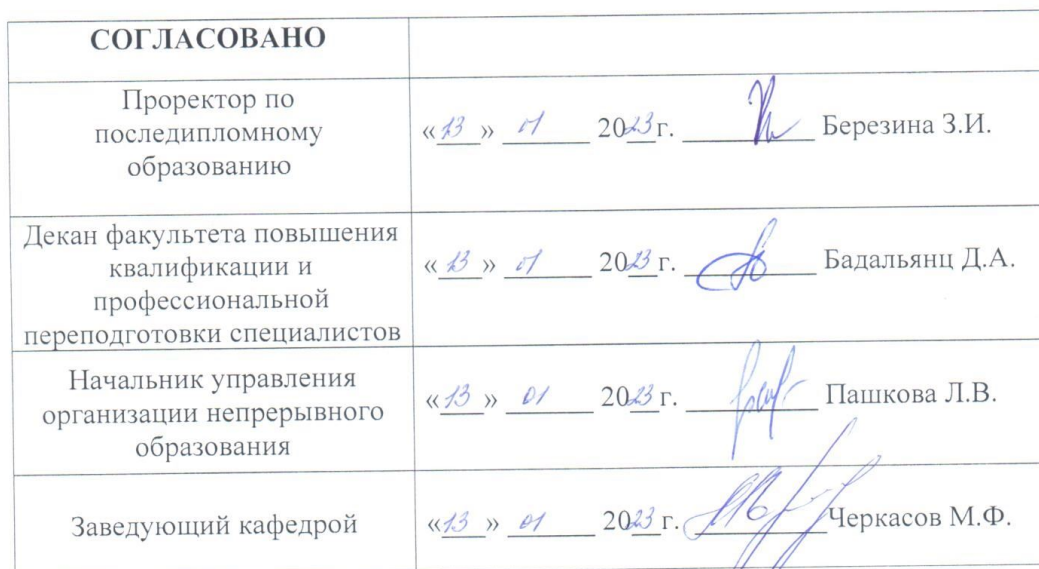 СОГЛАСОВАНО
Проректор по
последипломному
образованию
«13» 01 2023г. Березина З.И.
Декан факультета повышения
квалификации и
профессиональной
переподготовки специалистов
«13» 01 2023г. Бадальянц Д.А.
Начальник управления
организации непрерывного
образования
«13» 01 2023г. Пашкова Л.В.
Заведующий кафедрой
«13» 01 2023г. Черкасов М.Ф.